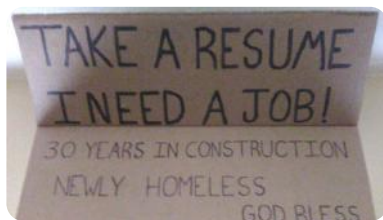 TAKE A RESUME
I NEED A JOB!
30 YEARS IN CONSTRUCTION
NEWLY HOMELESS
GOD BLESS